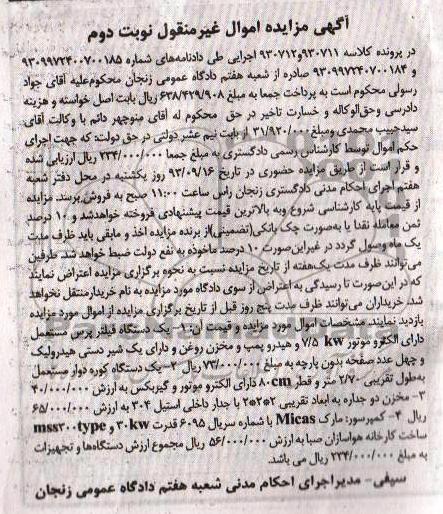 آگهی مزایده اموال غیرمنقول نوبت دوم
در پرونده کلاسه ۹۳۰۷۱۱و۹۳۰۷۱۲ اجرایی طی دادنامه‌های شماره ۹۳۰۹۹۷۲۴۰۰۷۰۰۱۸۵
و ۹۳۰۹۹۷۲۴۰۰۷۰۰۱۸۴ صادره از شعبه هفتم دادگاه عمومی زنجان محکوم‌علیه آقای جواد
رسولی محکوم است به پرداخت جمعا به مبلغ ۶۳۸/۴۲۹/۹۰۸ ریال بابت اصل خواسته و هزینه
دادرسی وحق‌الوکاله و خسارت تاخیر در حق محکوم له آقای منوچهر دائم با وکالت آقای
سیدحبیب محمدی ومبلغ ۳۱/۹۲۰/۰۰۰ از بابت نیم عشر دولتی در حق دولت: که جهت اجرای
حکم اموال توسط کارشناس رسمی دادگستری به مبلغ جمعا ۲۳۴/۰۰۰/۰۰۰ ریال ارزیابی شده
و قرار است از طریق مزایده حضوری در تاریخ ۹۳/۰۹/۱۶ روز یکشنبه در محل دفتر شعبه
هفتم اجرای احکام مدنی دادگستری زنجان راس ساعت ۱۱:۰۰ صبح به فروش‌برسند. مزایده
از قیمت پایه کارشناسی شروع وبه بالاترین قیمت پیشنهادی فروخته خواهدشد و ۱۰ درصد
ثمن معامله نقدا یا به‌صورت چک بانکی(تضمینی)از برنده مزایده اخذ و مابقی باید ظرف مدت
یک ماه وصول گردد در غیراین‌صورت ۱۰ درصد ماخوذه به نفع دولت ضبط خواهد شد. طرفین
می‌توانند ظرف مدت یک‌هفته از تاریخ مزایده نسبت به نحوه برگزاری مزایده اعتراض نمایند
که در این‌صورت تا رسیدگی به اعتراض از سوی دادگاه مورد مزایده به نام خریدارمنتقل نخواهد
شد. خریداران می‌توانند ظرف مدت پنج روز قبل از تاریخ برگزاری مزایده از اموال مورد مزایده
بازدید نمایند. مشخصات اموال مورد مزایده و قیمت آن: ۱- یک دستگاه فیلتر پرس مستعمل
دارای الکترو موتور ۷/۵ kw و هیدرو پمپ و مخزن روغن و دارای یک شیر دستی هیدرولیک
و چهل عدد صفحه بدون پارچه به مبلغ ۷۳/۰۰۰/۰۰۰ ریال ۲- یک دستگاه کوره دوار مستعمل
به‌طول تقریبی ۲/۷۰ متر و قطر ۸۰cm دارای الکترو موتور و گیربکس به ارزش ۴۰/۰۰۰/۰۰۰
۳- مخزن دو جداره به ابعاد تقریبی ۲*۲*۲ با جدار داخلی استیل ۳۰۴ به ارزش ۶۵/۰۰۰/۰۰۰
ریال ۴- کمپرسور: مارک Micas با شماره سریال ۶۰۹۵ قدرت ۳۰kw و mss۳۰۰type
ساخت کارخانه هواسازان صبا به ارزش ۵۶/۰۰۰/۰۰۰ ریال مجموع ارزش دستگاه‌ها و تجهیزات
به مبلغ ۲۳۴/۰۰۰/۰۰۰ ریال می باشد.
سیفی- مدیراجرای احکام مدنی شعبه هفتم دادگاه عمومی زنجان